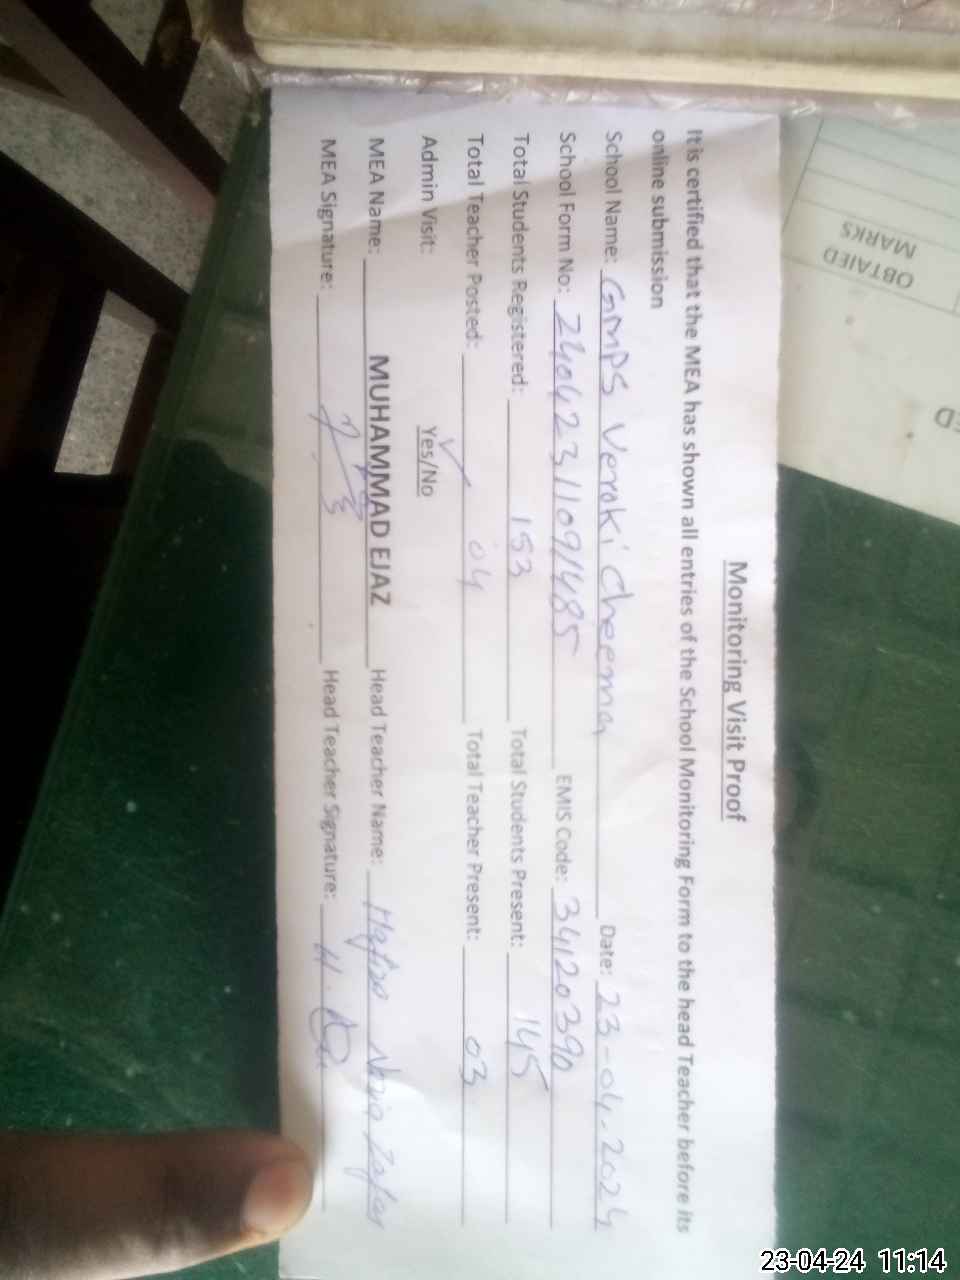 Monitoring Visit Proof
It is certified that the MEA has shown all entries of the School Monitoring Form to the head Teacher before its
online submission
School Name: GMPS Veroki Cheema Date: 23-04-2024
School Form No: 24042311091485 EMIS Code: 34120390
Total Students Registered: 153 Total Students Present: 145
Total Teacher Posted: 04 Total Teacher Present: 03
Admin Visit: Yes/No
MEA Name: MUHAMMAD EJAZ Head Teacher Name: Zafar
MEA Signature: Head Teacher Signature:
OBTAIED
MARKS
23-04-24 11:14